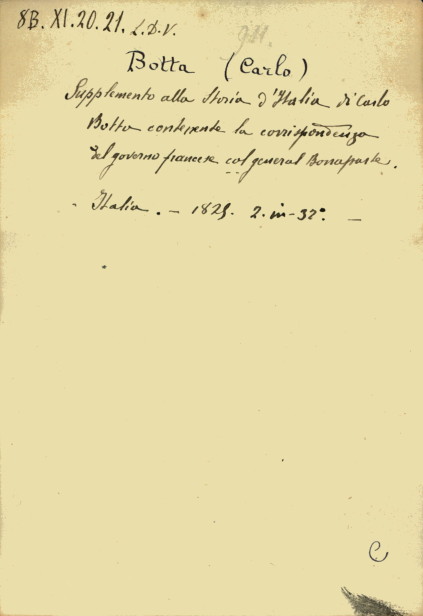 8B. XI. 20. 21. L. D. V.
Botta (Carlo)
Supplemento alla Storia d'Italia di Carlo
Botta contenente la corrispondenza
del governo francese col general Bonaparte.
- Italia. - 1825. 2. in-32°. -
C